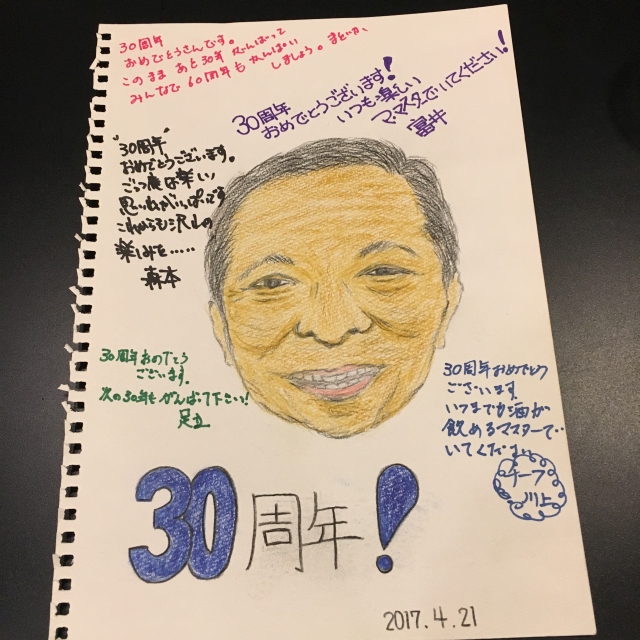 30周年
おめでとうさんです。
このまま あと30年 がんばって
みんなで 60周年も かんぱい
しましょう。まどか、
30周年
おめでとうございます!
いつも楽しい
マスターでいてください!
富井
"30周年"
おめでとうございます。
ごっつ屋は楽しい
思い出がいっぱいです
これからも沢山の
楽しみを……
森本
30周年おめでとう
ございます。
次の30年もがんばって下さい!
足立
30周年おめでとう
ございます
いつまでもお酒が
飲めるマスターで
いてください
チーフ
川上
30周年!
2017.4.21